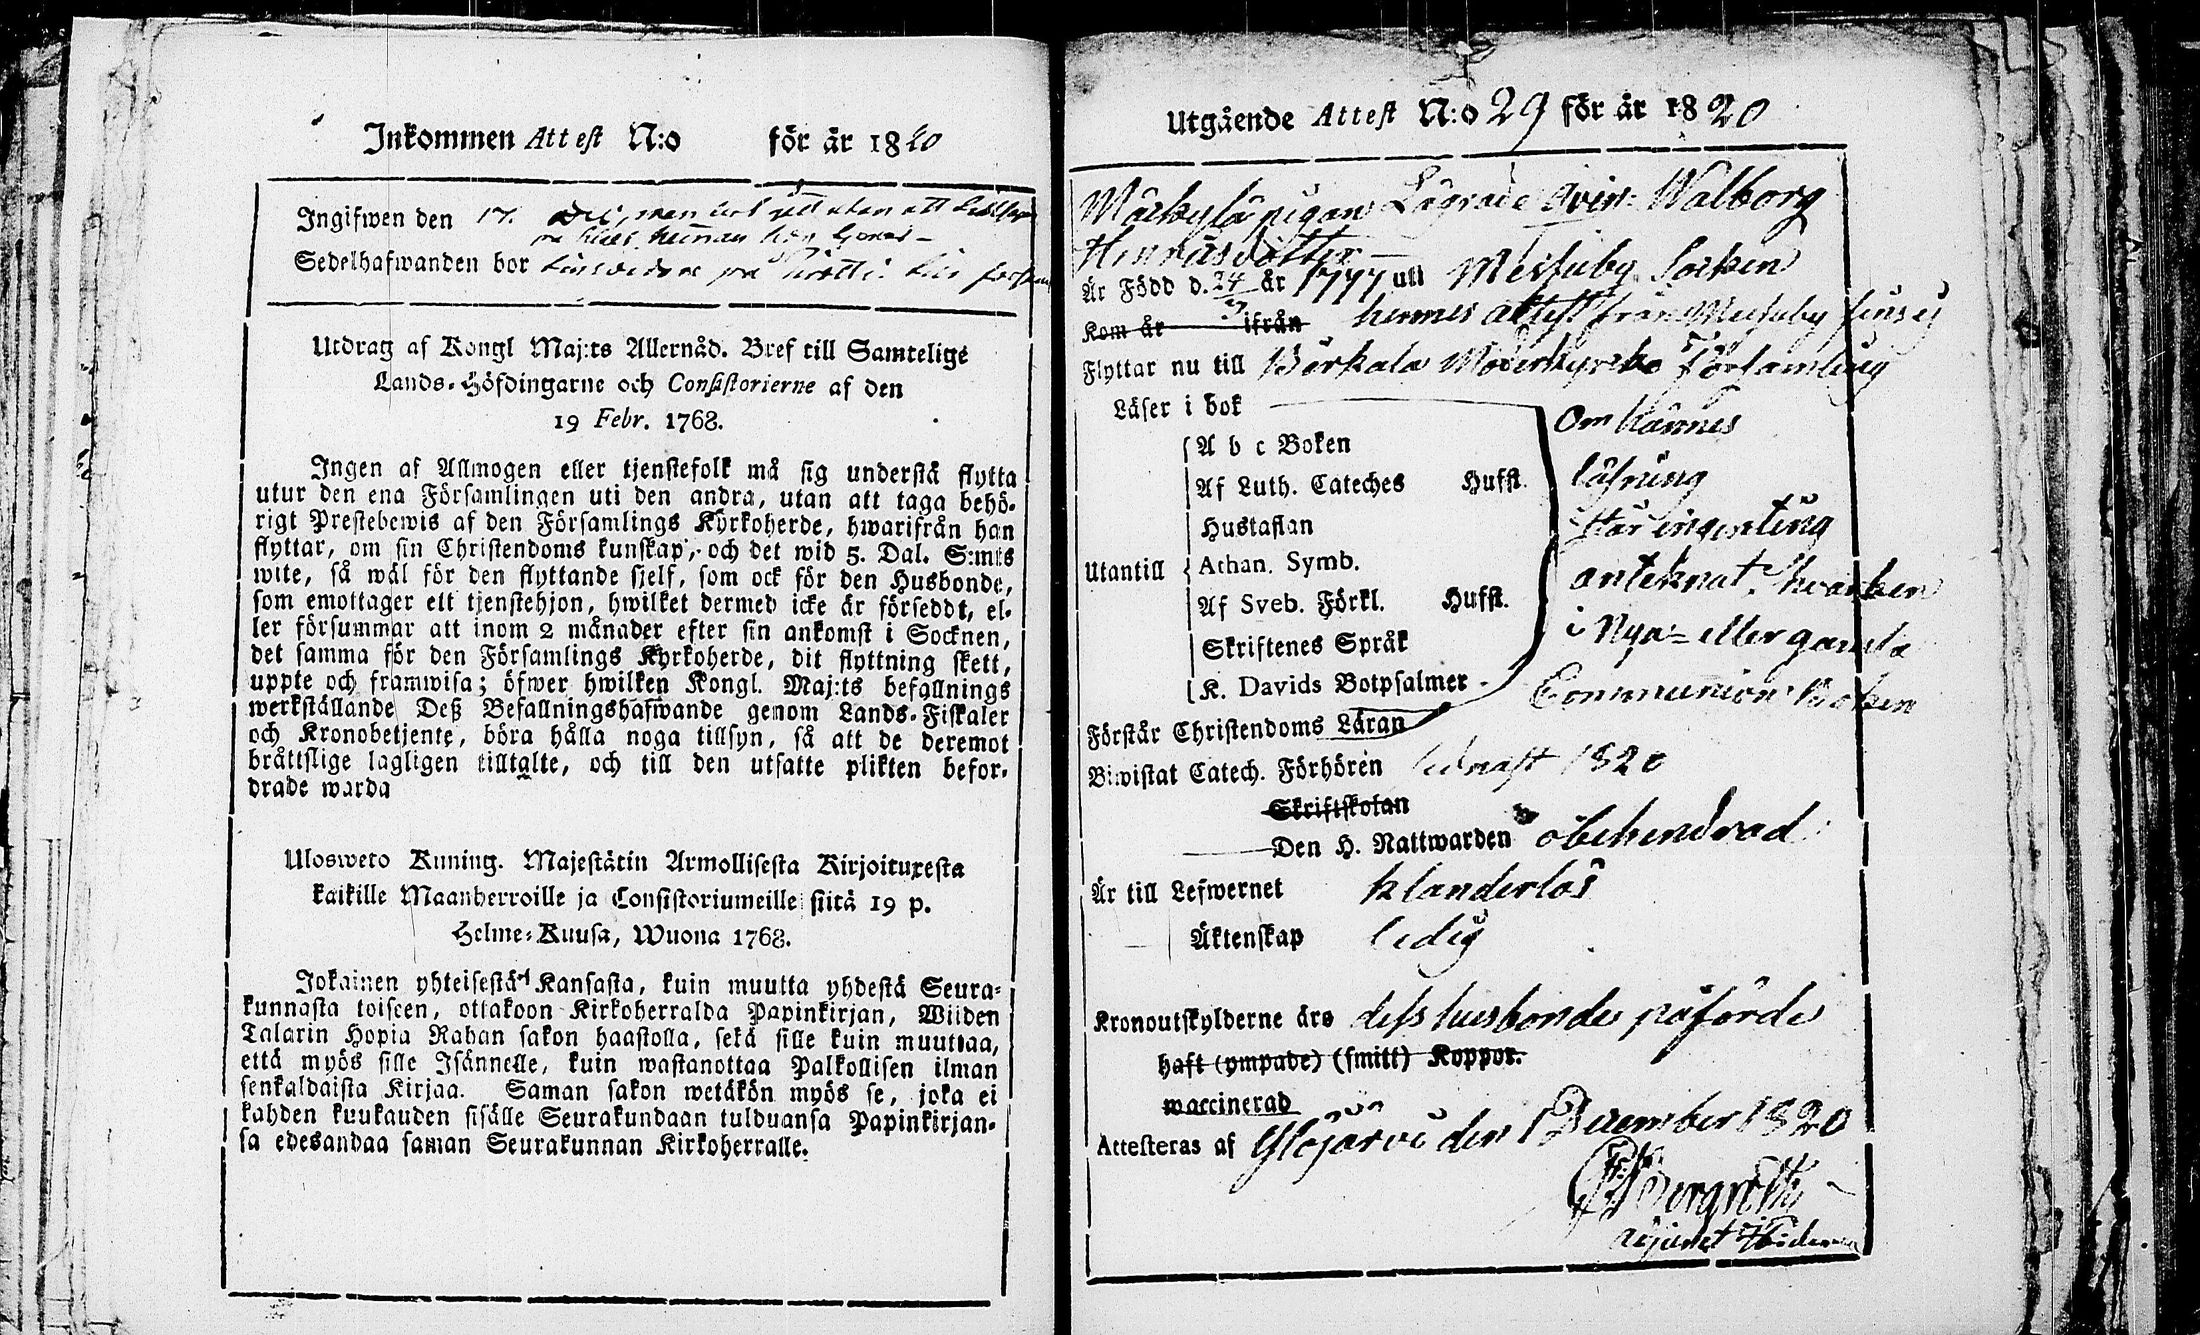 Inkommen Attest N:o för år 1820
Ingifwen den 17.
Sedelhafwanden bor
Utdrag af Kongl Maj:ts Allernåd. Bref till Samtelige
Lands-Höfdingarne och Consistorierne af den
19 Febr. 1768.
Ingen af Allmogen eller tjenstefolk må sig understå flytta
utur den ena Församlingen uti den andra, utan att taga behö-
rigt Prestebewis af den Församlings Kyrkoherde, hwarifrån han
flyttar, om sin Christendoms kunskap, och det wid 5. Dal. S:mts
wite, så wäl för den flyttande sjelf, som ock för den Husbonde,
som emottager ett tjenstehjon, hwilket dermed icke är försedt, el-
ler försummar att inom 2 månader efter sin ankomst i Socknen,
det samma för den Församlings Kyrkoherde, dit flyttning skett,
uppte och framwisa; öfwer hwilken Kongl. Maj:ts befallnings
werkställande Deß Befallningshafwande genom Lands-Fiskaler
och Kronobetjente, böra hålla noga tillsyn, så att de deremot
bråttslige lagligen tilltalte, och till den utsatte plikten befor-
drade warda
Ulosweto Kuning. Majestätin Armollisesta Kirjoituxesta
kaikille Maanherroille ja Consistoriumeille siitä 19 p.
Helme-Kuusa, Wuona 1768.
Jokainen yhteisestä Kansasta, kuin muutta yhdestä Seura-
kunnasta toiseen, ottakoon Kirkoherralda Papinkirjan, Wiiden
Talarin Hopia Rahan sakon haastolla, sekä sille kuin muuttaa,
että myös sille Isännelle, kuin wastanottaa Palkollisen ilman
senkaldaista Kirjaa. Saman sakon wetäkön myös se, joka ei
kahden kuukauden sisälle Seurakundaan tulduansa Papinkirjan-
sa edesandaa saman Seurakunnan Kirkoherralle.
Utgående Attest N:o 29 för år 1820
Lägrade qvin: Walborg
Henricsdotter
Är Född d. 24 år 1777 uti Messuby Socken
Kom år ifrån hennes attest från Messuby fins ej
Flyttar nu till Birkala Moderkyrko Församling
Läser i bok Om hännes
A b c Boken
Af Luth. Cateches Hufst. läsning
Hustaflan står ingenting
Utantill Athan. Symb. anteknat hvarken
Af Sveb. Förkl. Hufst. i Nya- eller gamla
Skriftenes Språk
K. Davids Botpsalmer Communion boken
Förstår Christendoms Läran
Biwistat Catech. Förhören sednast 1820
Skriftskolan
Den H. Nattwarden obehindrad
Är till Lefwernet klanderlös
Äktenskap ledig
Kronoutskylderne äro dess husbonde påförde
haft (ympade) (smitt) Koppor.
waccinerad
Attesteras af Ylöjärvi den 1 December 1820
Bergroth